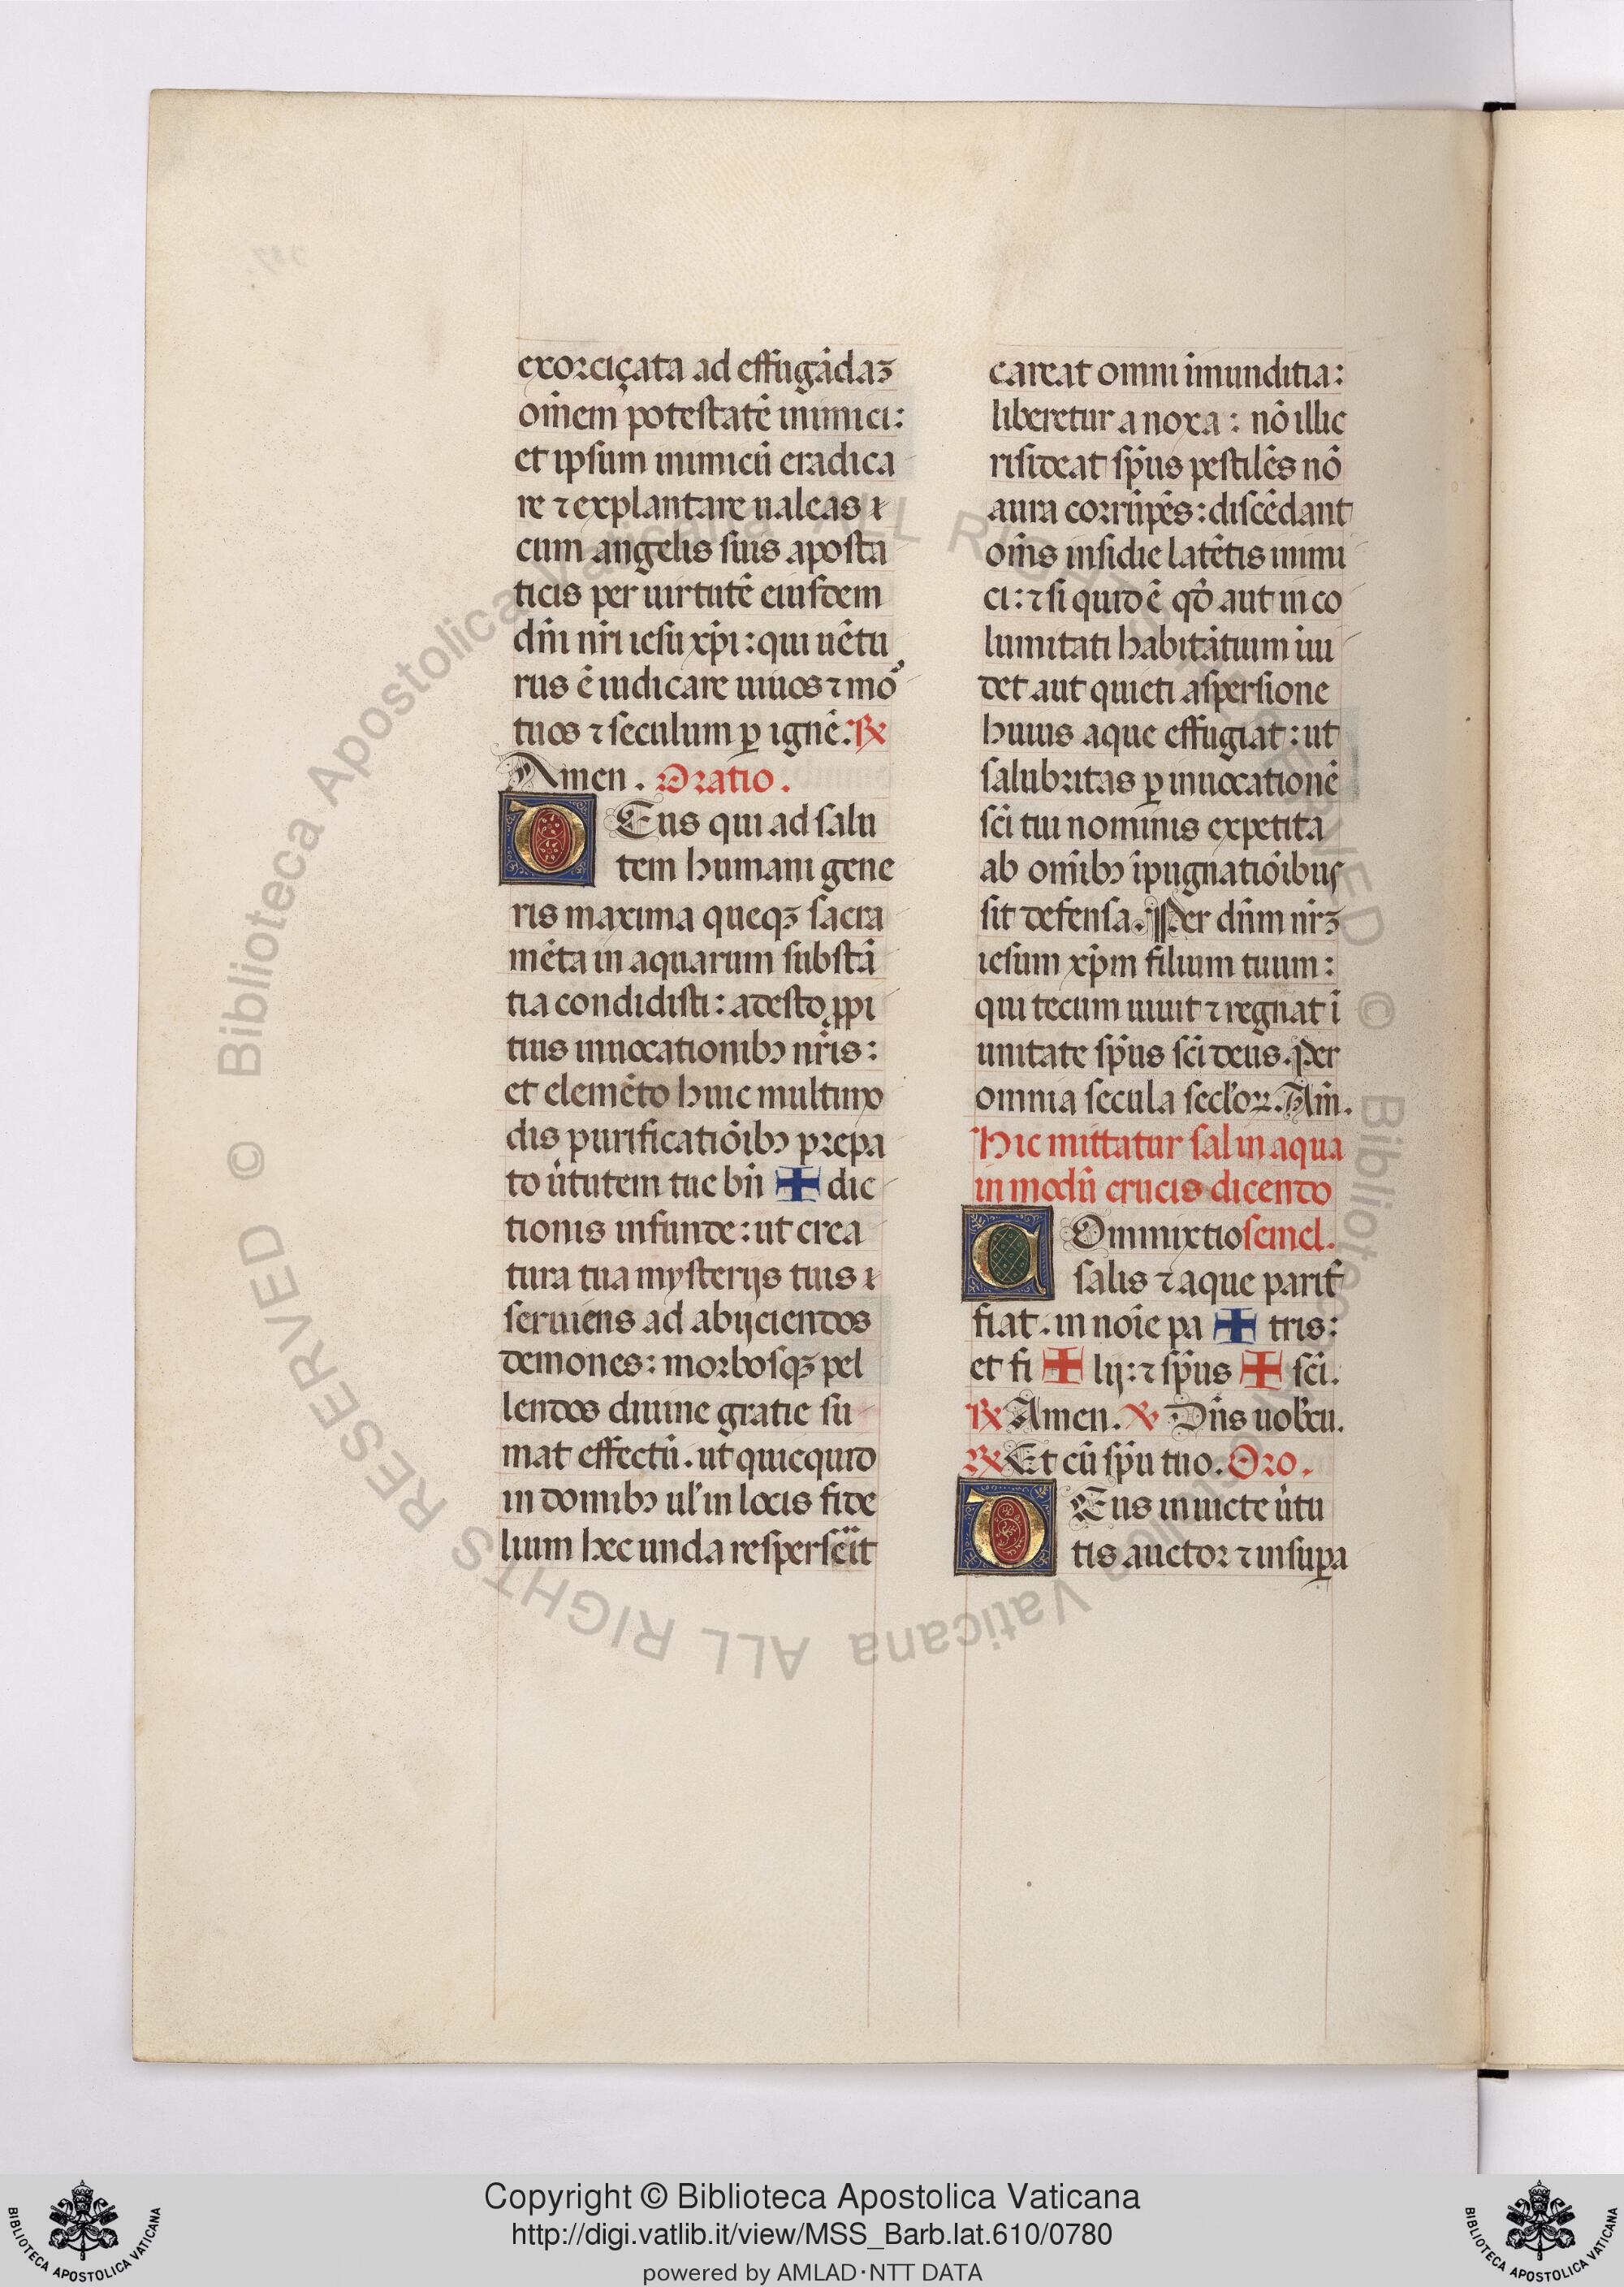 exorciçata ad effugādaꝫ
om̄em potestatē inimici:
et ipsum inimicū eradica
re ⁊ explantare ualeas
cum angelis suis aposta
ticis per uirtutē eiusdem
dn̄i nr̄i iesu xp̄i: qui uētu
rus ē iudicare uiuos ⁊ mo᷒
tuos ⁊ seculum ꝑ ignē. ℞
Amen. Oratio.
DEus qui ad salu
tem humani gene
ris maxima queqꝫ sacra
mēta in aquarum substā
tia condidisti: adesto ꝓpi
tius inuocationibꝰ nr̄is:
et elemēto huic multimo
dis purificatiōibꝰ prepa
to ūtutem tue bn̄ ✚ dic
tionis infunde: ut crea
tura tua mysterijs tuis
seruiens ad abijciendos
demones: morbosqꝫ pel
lendos diuine gratie su
mat effectū. ut quicquid
in domibꝰ ul' in locis fide
lium hec unda resperserit
careat omni imunditia:
liberetur a noxa: nō illic
risideat sp̄us pestilēs nō
aura corrūpēs: discēdant
om̄s insidie latētis inimi
ci: ⁊ si quid ē qd̄ aut inco
lumitati habitātium iui
det aut quieti aspersione
huius aque effugiat: ut
salubritas ꝑ inuocationē
sc̄i tui nominis expetita
ab om̄ibꝰ īpugnatiōibus
sit defensa. Per dn̄m nr̄ꝫ
iesum xp̄m filium tuum:
qui tecum uiuit ⁊ regnat ī
unitate sp̄us sc̄i deus. Per
omnia secula secl'oꝝ. Am̄.
Hic mittatur sal in aqua
in modū crucis dicendo
COmmixtio semel.
salis ⁊ aque parit̄
fiat. in noīe pa ✚ tris:
et fi ✚ lij: ⁊ sp̄us ✚ sc̄i.
℞ Amen. ℣ Dn̄s uob'cū.
℞ Et cū sp̄u tuo. Oro.
DEus inuicte ūtu
tis auctor ⁊ insuꝑa
© Biblioteca Apostolica Vaticana ALL RIGHTS RESERVED © Biblioteca Apostolica Vaticana ALL RIGHTS RESERVED
Copyright © Biblioteca Apostolica Vaticana
http://digi.vatlib.it/view/MSS_Barb.lat.610/0780
powered by AMLAD·NTT DATA
BIBLIOTECA APOSTOLICA VATICANA
BIBLIOTECA APOSTOLICA VATICANA